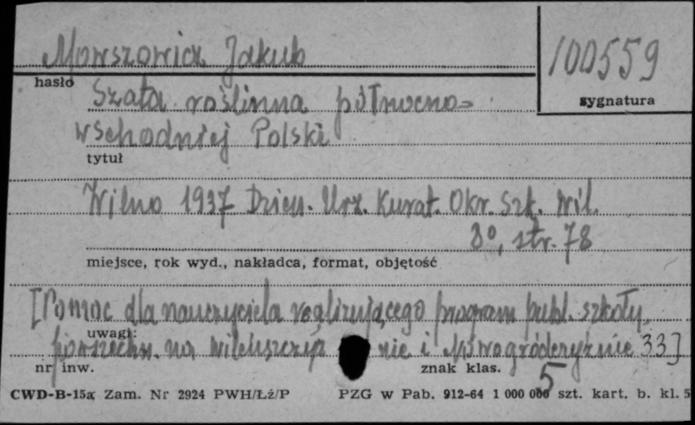 Mowszowicz Jakub
100559
hasło
sygnatura
Szata roślinna północno-
wschodniej Polski
tytuł
Wilno 1937 Dzien. Urz. Kurat. Okr. Szk. Wil.
8°, str. 78
miejsce, rok wyd., nakładca, format, objętość
[Pomoc dla nauczyciela realizującego program publ. szkoły
uwagi:
powszechn. na wileńszczyź nie i Nowogródczyźnie 33]
nr inw.
znak klas.
5
CWD-B-15a Zam. Nr 2924 PWH/Łź/P PZG w Pab. 912-64 1 000 000 szt. kart. b. kl. 5